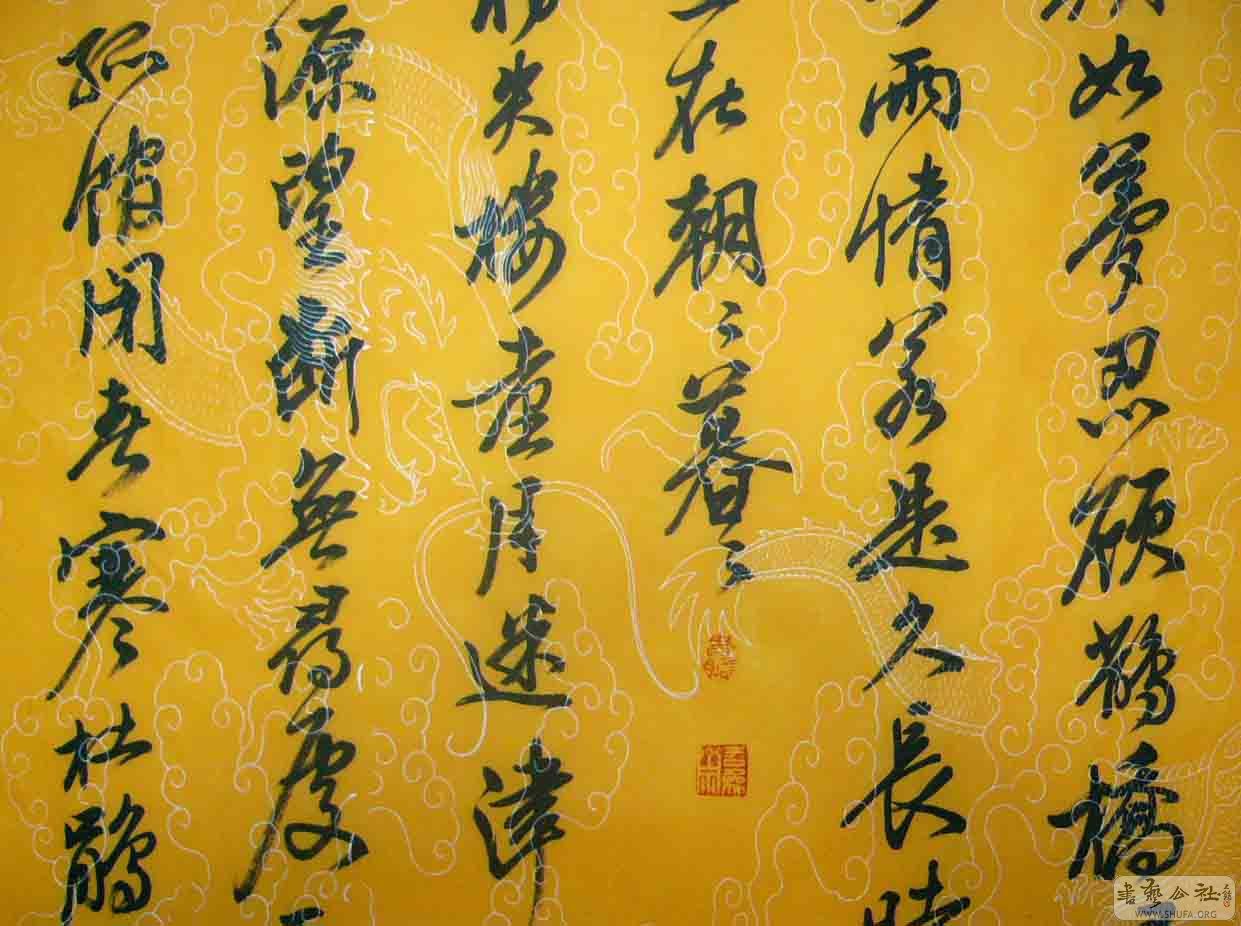 如夢忍顾鵲橋
兩情若是久長時
在朝々暮々
失樓臺月迷津
源望斷無尋處
孤館閉春寒杜鵑
書藝公社
WWW.SHUFA.ORG